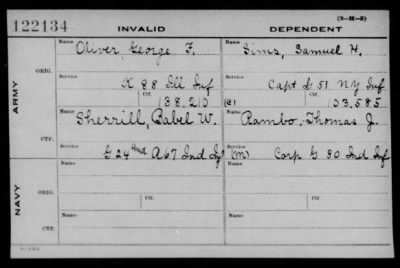 (3-H-5)
122134 INVALID DEPENDENT
Name Oliver, George F. Name Sims, Samuel H.
ORIG.
Service K 88 Ill Inf Service Capt G 51 NY Inf
Ctf. 138.210 (C) Ctf. 103.585
ARMY
Name Sherrill, Babel W. Name Rambo, Thomas J.
CTF.
Service G 24 and A 67 Ind Inf Service (M) Corp G 80 Ind Inf
Name Name
ORIG.
Service Service
Ctf. Ctf.
NAVY
Name Name
CTF.